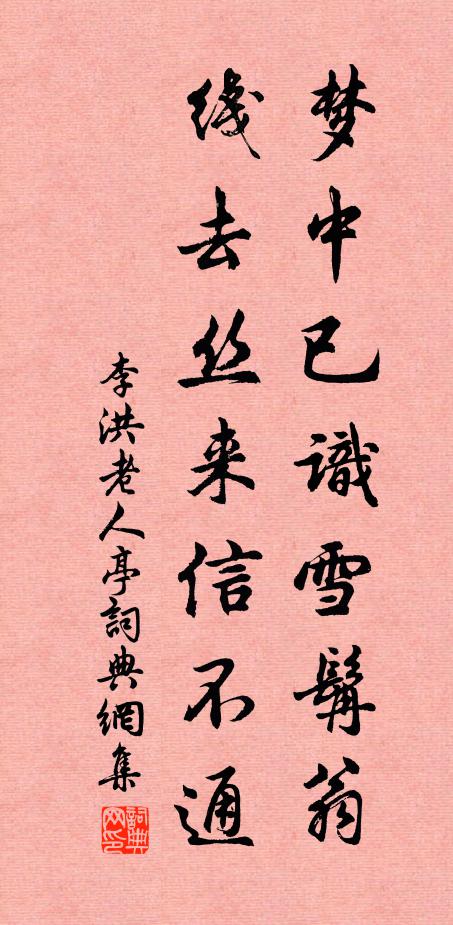 梦中已識雪髯翁
綫去丝来信不通
李洪老人亭詞典網集
詞典网印